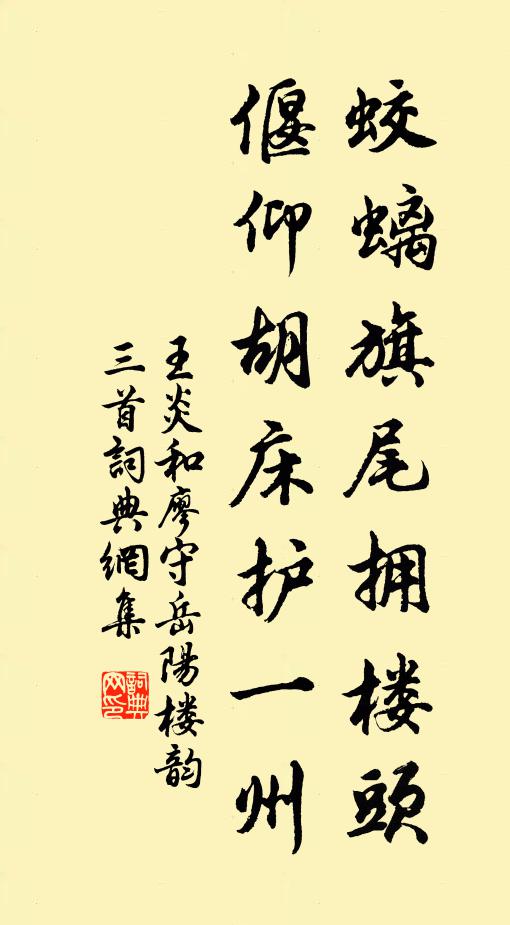 蛟螭旗尾拥楼頭
偃仰胡床护一州
王炎和廖守岳陽楼韵
三首詞典網集
詞典网印